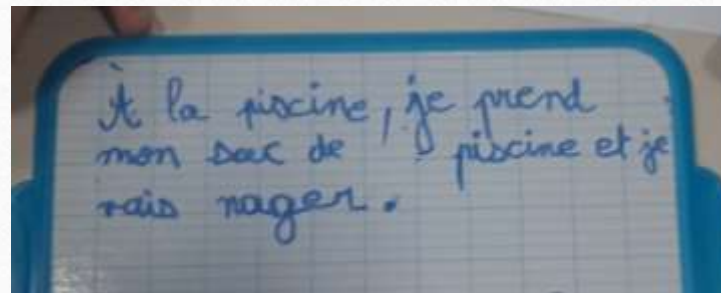 À la piscine, je prend
mon sac de piscine et je
vais nager.